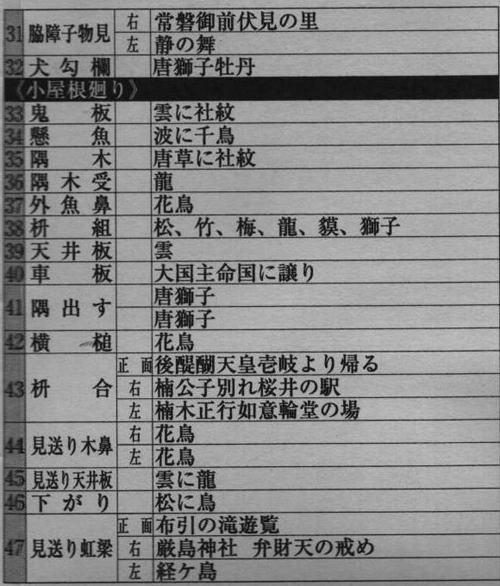 31 脇障子物見 右 常磐御前伏見の里
左 静の舞
32 犬勾欄 唐獅子牡丹
《小屋根廻り》
33 鬼板 雲に社紋
34 懸魚 波に千鳥
35 隅木 唐草に社紋
36 隅木受 龍
37 外魚鼻 花鳥
38 枡組 松、竹、梅、龍、貘、獅子
39 天井板 雲
40 車板 大国主命国に譲り
41 隅出す 唐獅子
唐獅子
42 横槌 花鳥
43 枡合 正面 後醍醐天皇壱岐より帰る
右 楠公子別れ桜井の駅
左 楠木正行如意輪堂の場
44 見送り木鼻 右 花鳥
左 花鳥
45 見送り天井板 雲に龍
46 下がり 松に鳥
47 見送り虹梁 正面 布引の滝遊覧
右 厳島神社 弁財天の戒め
左 経ケ島